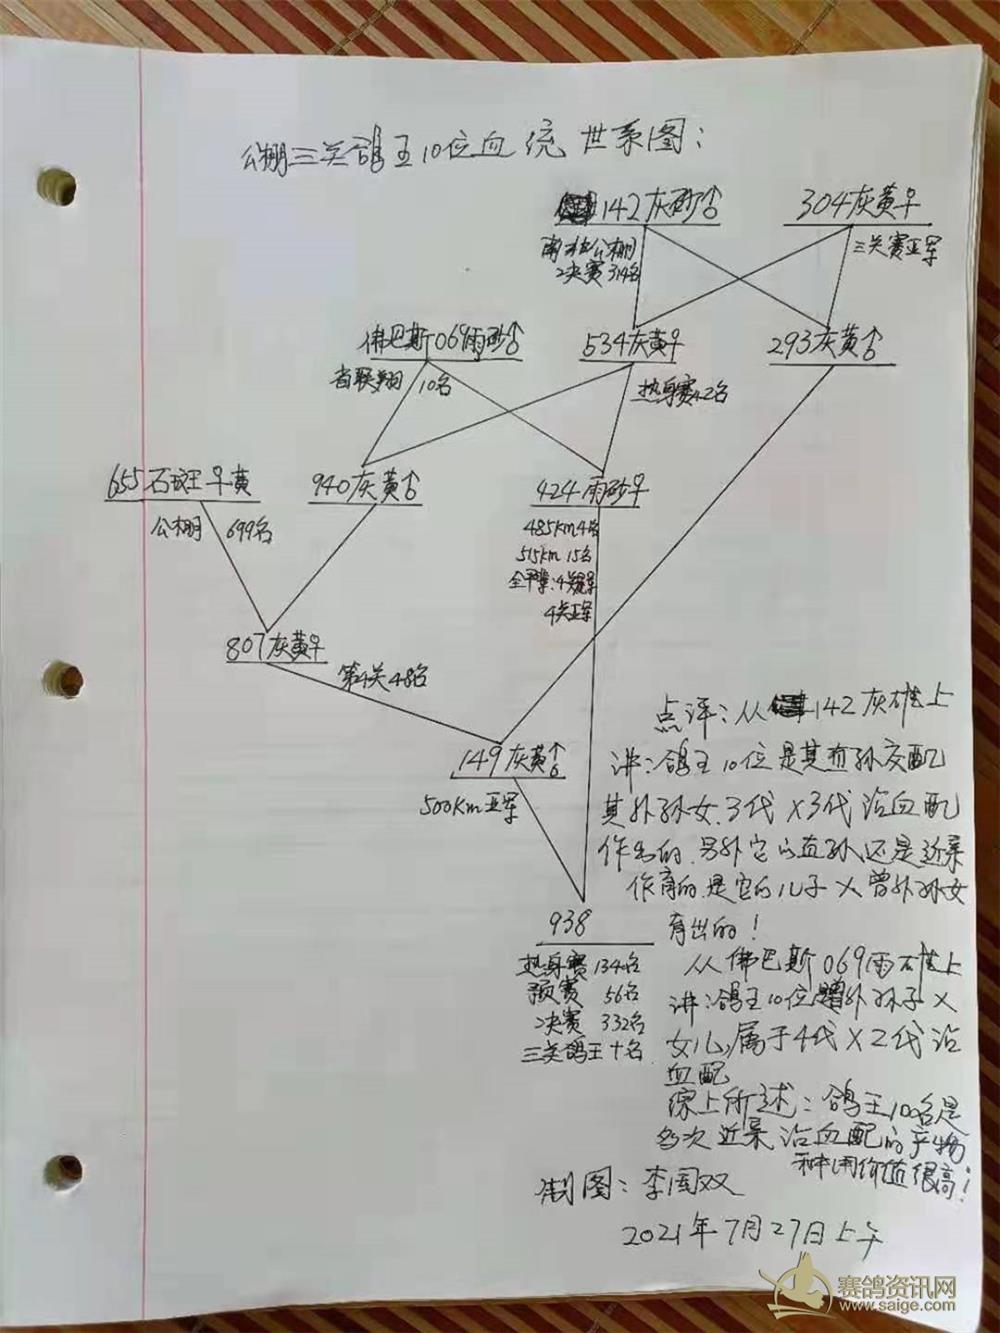 公棚三关鸽王10位血统世系图：
142灰砂♂
304灰黄♀
公棚
2决赛314名
三关赛亚军
佛巴斯069雨砂♂
534灰黄♀
293灰黄♂
省联翔 10名
热身赛42名
655石斑♀黄
940灰黄♂
424雨砂♀
公棚 699名
485km4名
515km15名
4关亚军
807灰黄♀
第4关48名
149灰黄♂
500Km亚军
点评：从142灰雄上
讲：鸽王10位是其孙交配
其外孙女.3代X3代沿血配
作出的.另外它的直孙还是近亲
作育的.是它的儿子X曾外孙女
育出的！
938
热身赛134名
预赛 56名
2决赛 332名
三关鸽王十名
从佛巴斯069雨雄上
讲：鸽王10位曾外孙子X
女儿,属于4代X2代沿
血配
综上所述：鸽王10名是
多次近亲沿血配的产物
种用价值很高！
制图：李国双
2021年7月27日上午
赛鸽资讯网
www.saige.com